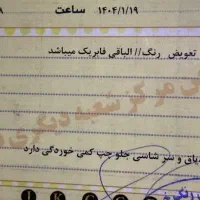 ساعت ۱۴۰۴/۱/۱۹
تعویض رنگ// الباقی فابریک میباشد
مرکز سعید دیگری
یاق و سر شاسی جلو چپ کمی خوردگی دارد